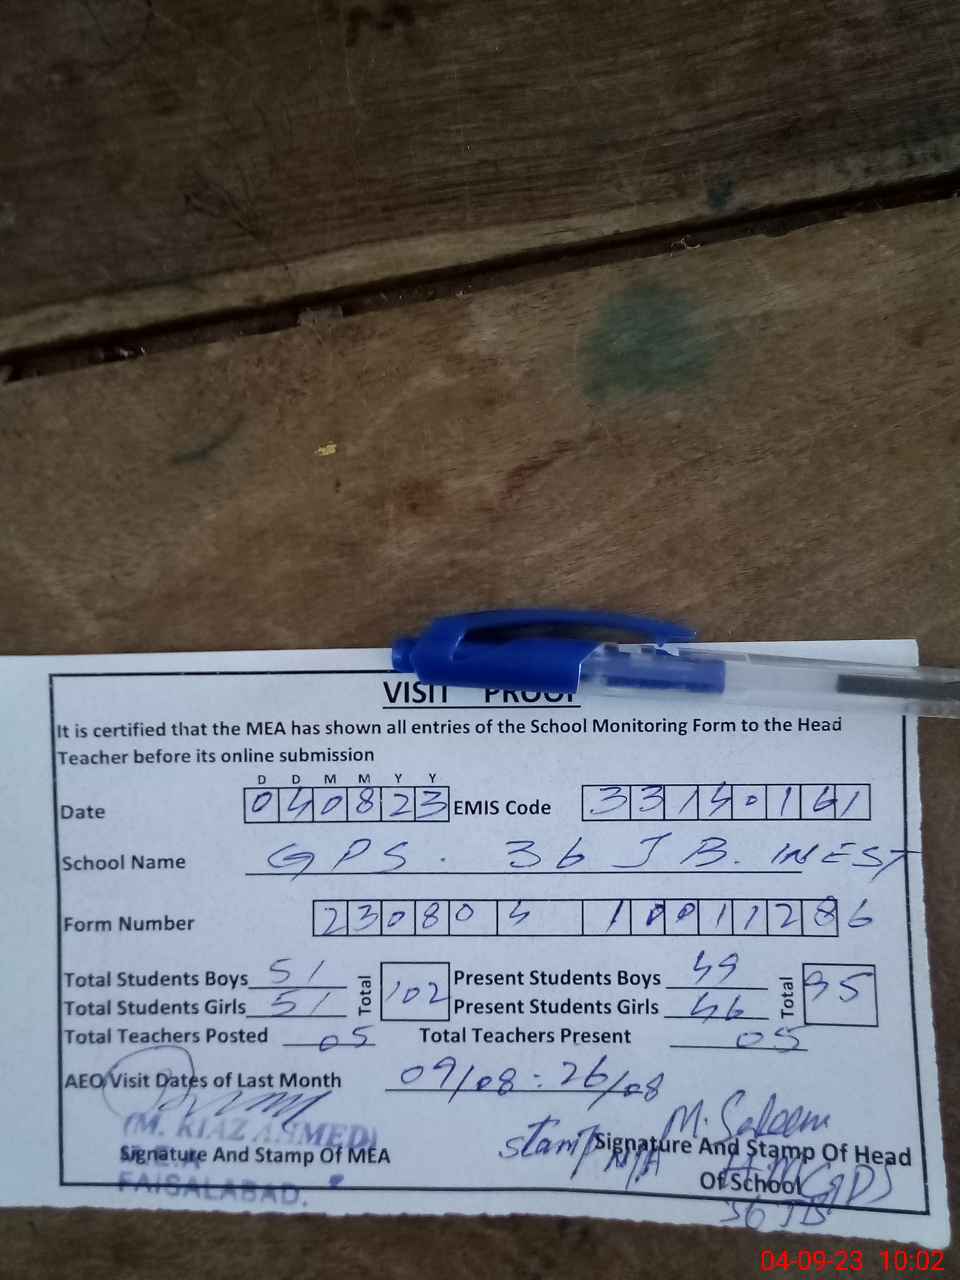 VISIT PROOF
It is certified that the MEA has shown all entries of the School Monitoring Form to the Head
Teacher before its online submission
D D M M Y Y
Date 040823 EMIS Code 33140161
School Name GPS. 36 JB. WEST
Form Number 23080 4 10011286
Total Students Boys 51 Total 102 Present Students Boys 49 Total 95
Total Students Girls 51 Present Students Girls 46
Total Teachers Posted 05 Total Teachers Present 05
AEO Visit Dates of Last Month 09/08 : 26/08
(M. RIAZ AHMED) M. Saleem
Signature And Stamp Of MEA stamp N/A Signature And Stamp Of Head
Of School
FAISALABAD. 36 JB
04-09-23 10:02